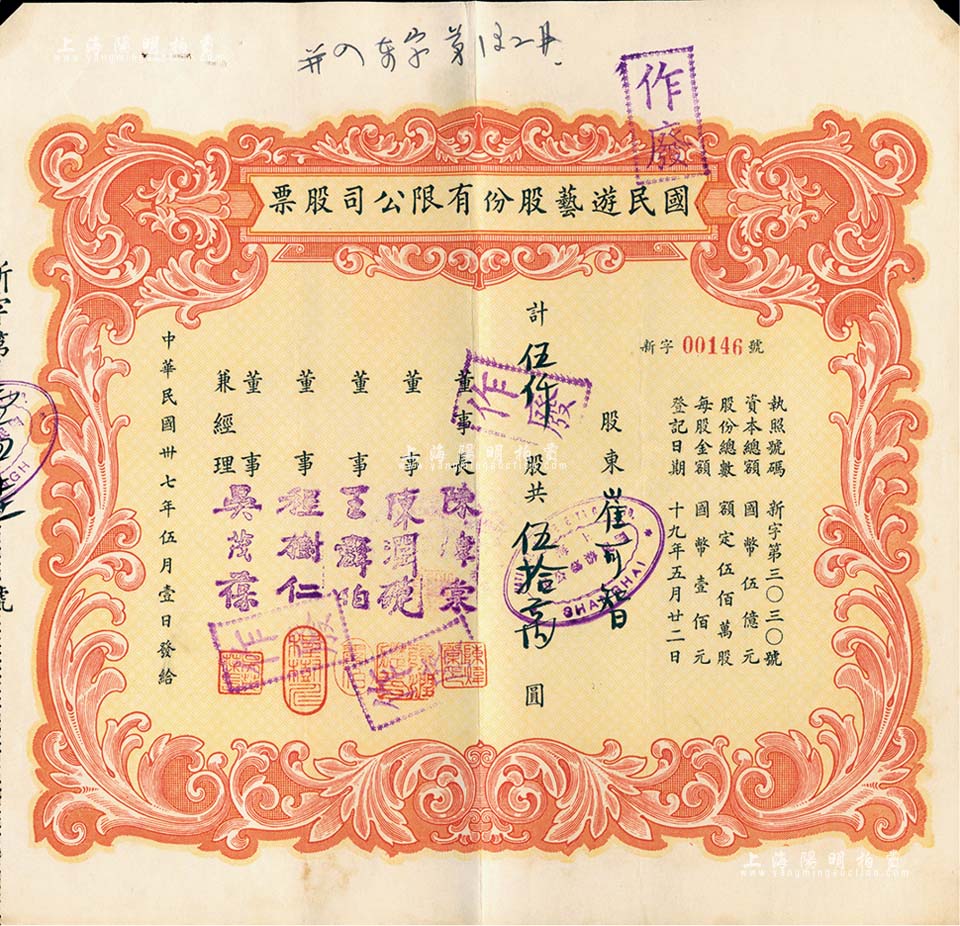 上海陽明拍賣
www.yangmingauction.com
作廢
國民遊藝股份有限公司股票
新字 00146 號
執照號碼 新字第三〇三〇號
資本總額 國幣伍億元
股份總數 額定伍佰萬股
每股金額 國幣壹佰元
登記日期 十九年五月廿二日
股東 崔可智
計伍仟股共伍拾萬圓
作廢
SHANGHAI
董事長
董事 陳潤琬
董事 王
董事 程樹仁
董事兼經理 吳茂葆
中華民國卅七年伍月壹日發給
作廢
作廢
新字第
號
上海陽明拍賣
www.yangmingauction.com
上海陽明拍賣
www.yangmingauction.com